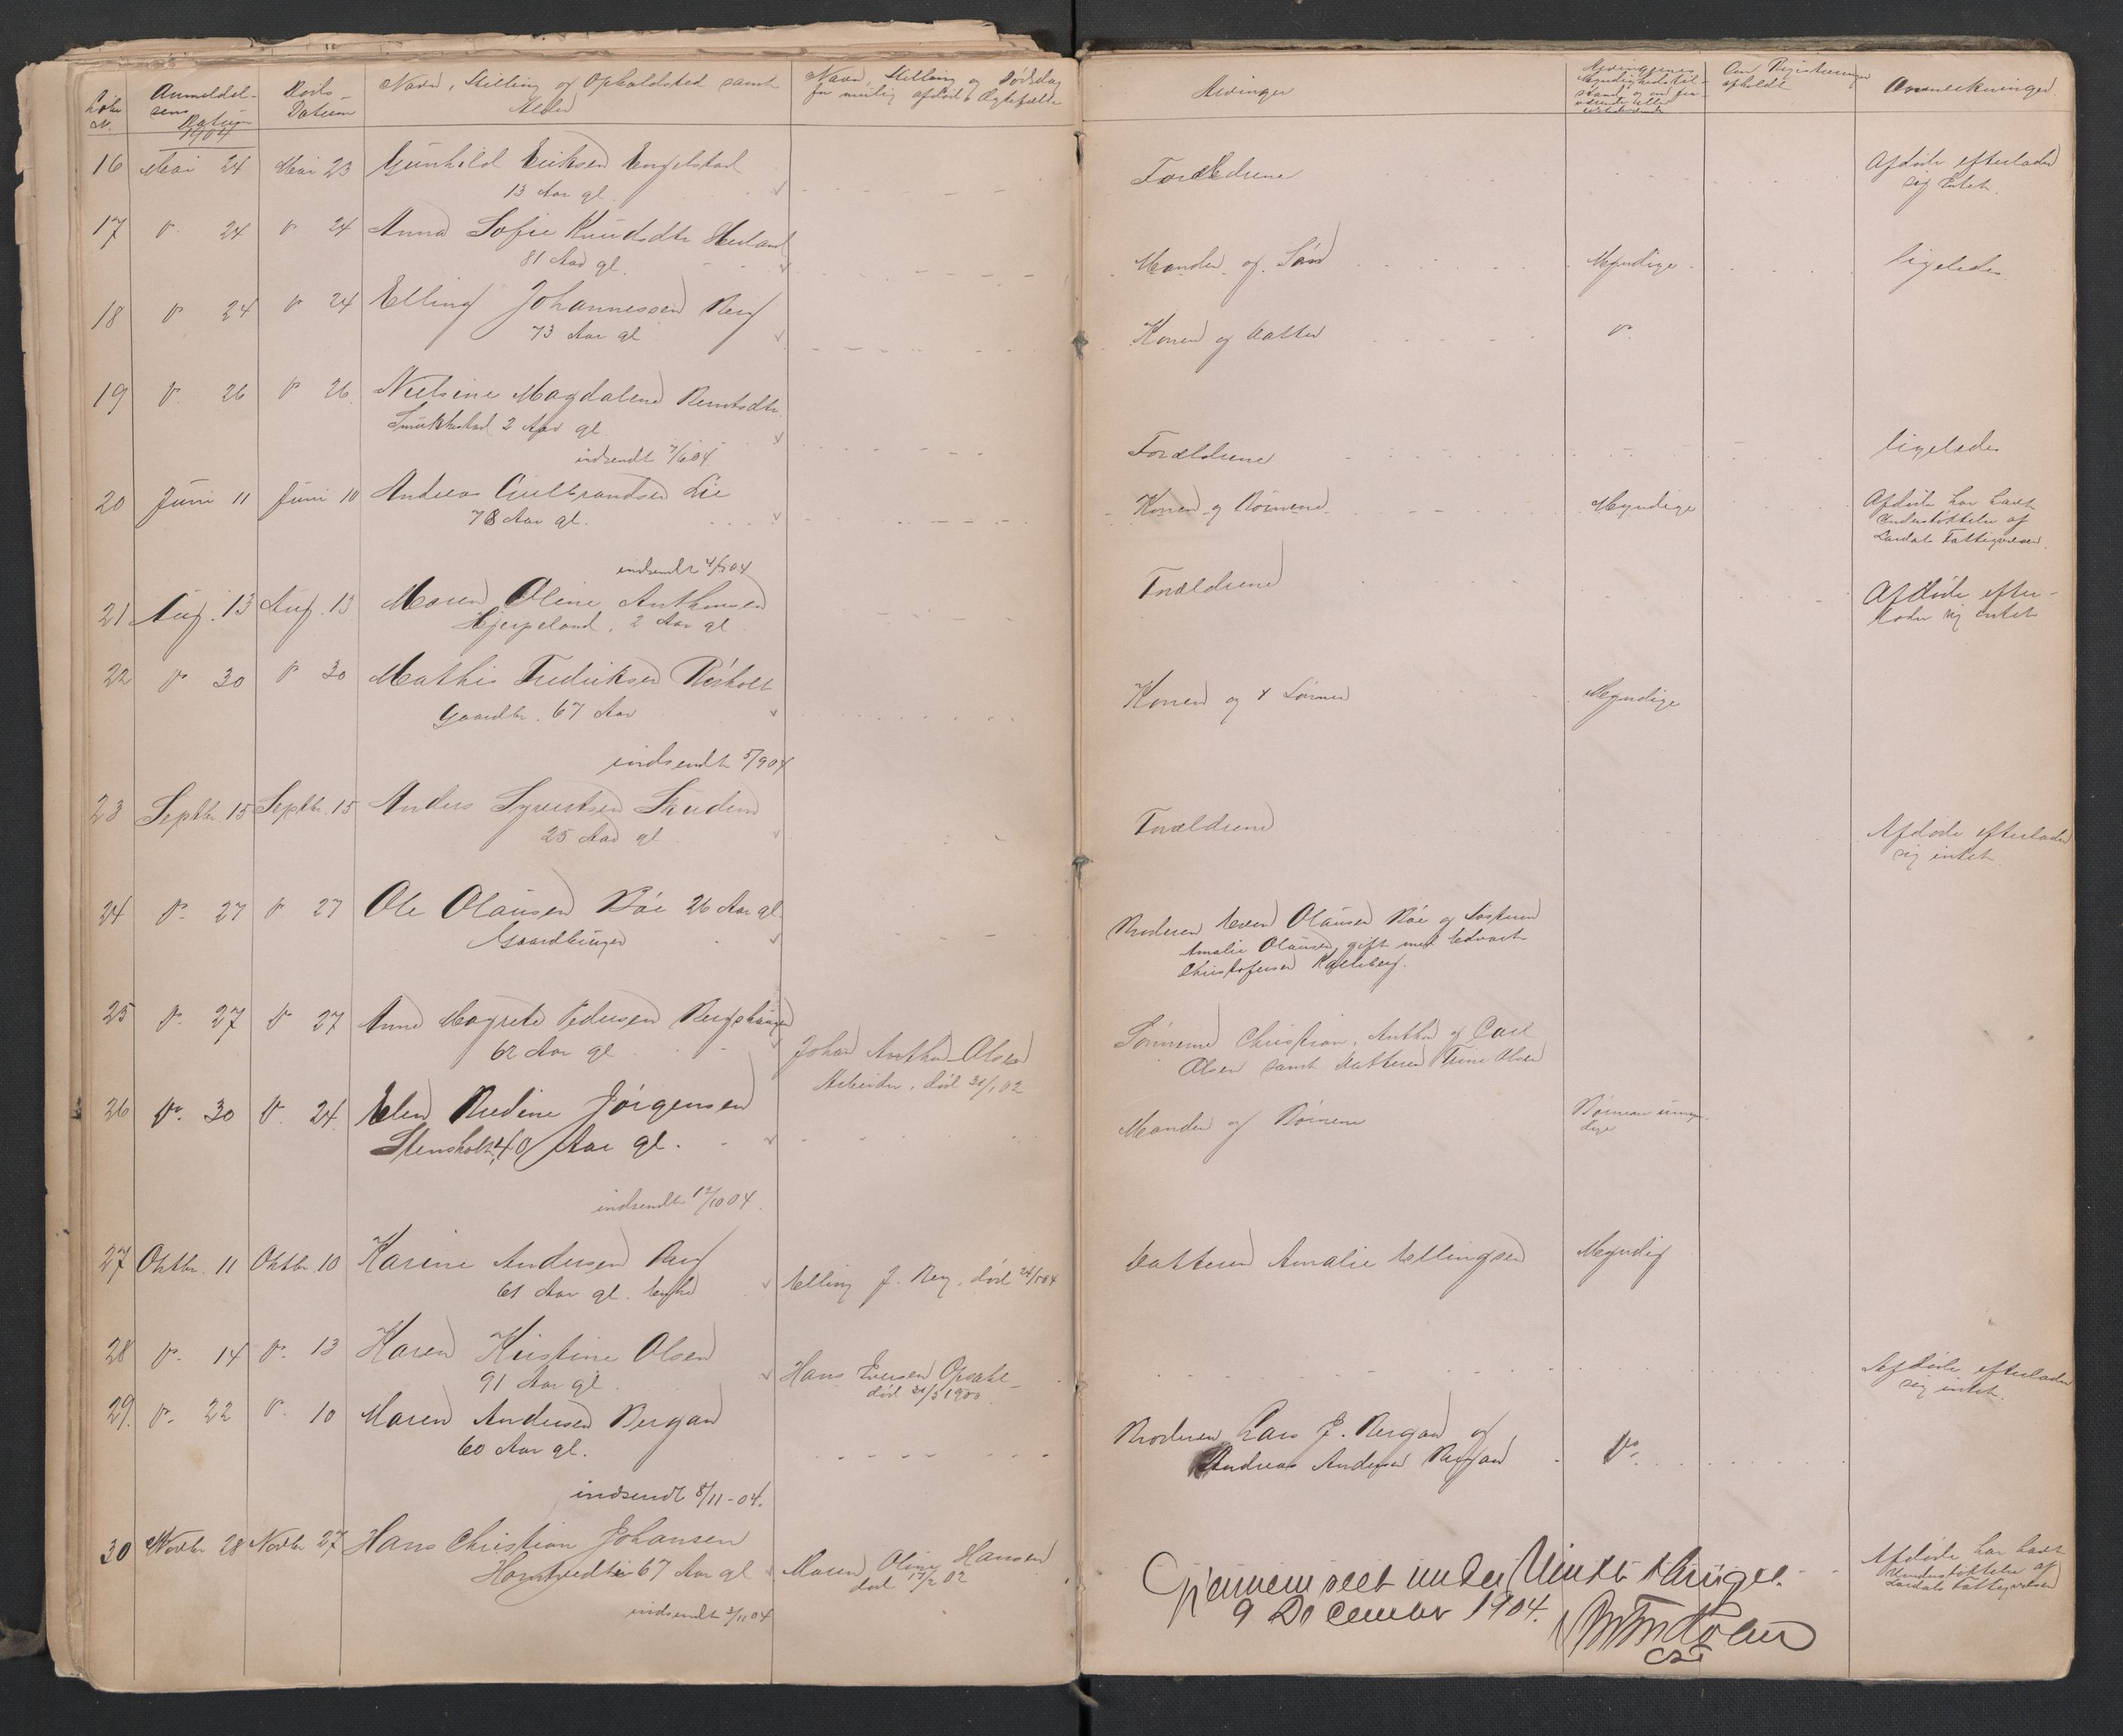 Løbe
N.
Anmeldel-
sens
Datum
Døds-
Datum
Navn, Stilling og Opholdsted samt
Alder
Navn, Stilling og Dødsdag
for mulig afdød Ægtefælle
Arvinger
Arvingernes
Myndighedstil-
stand og om fra-
værende eller
Om Registrering
afholdt
Anmerkninger
1904
16 Mai 24 Mai 23 Gunhild Eriksen Engelstad
13 Aar gl.
Forældrene
Afdøde efterlader
sig intet.
17 " 24 " 24 Anna Sofie Knudsdtr
81 Aar gl.
Manden og Søn Myndige
ligeledes
18 " 24 " 24 Elling Johannessen Berg
73 Aar gl
Konen og Datter "
19 " 26 " 26 Nielsine Magdalene Berntsdtr.
2 Aar gl.
indsendt 7/6 04
Forældrene
ligeledes
20 Juni 11 Juni 10 Andreas Gulbrandsen Lie
78 Aar gl.
Konen og Børnene Myndige
Afdøde har havt
Understøttelse af
Lardal Fattigvæsen
indsendt 4/7 04
21 Aug. 13 Aug. 13 Maren Oline Anthonsen
Hjerpeland, 2 Aar gl
Forældrene
Afdøde efter-
lader sig intet
22 " 30 " 30 Mathis Fredriksen Røsholt
Gaardbr. 67 Aar
Konen og 4 Sønner Myndige
indsendt 5/9 04
23 Septbr. 15 Septbr. 15 Anders Syvertsen
25 Aar gl
Forældrene
Afdøde efterlader
sig intet.
24 " 27 " 27 Ole Olausen Bøe 26 Aar gl.
Gaardbruger
Broderen Even Olausen Bøe og Søsteren
Amalie Olausen, gift med Edvart
Christofersen
25 " 27 " 27 Anne Magrete Pedersen Bergshaugen
62 Aar gl
Johan Anthon Olsen
Arbeider, død 31/1 02
Sønnerne Christian, Anthon og Carl
Olsen samt Datteren Trine Olsen
26 " 30 " 24 Elen Bredine Jørgensen
Stensholt, 40 Aar gl.
Manden og Børnene
Børnene umyn-
dige
indsendt 12/10 04
27 Oktbr. 11 Oktbr. 10 Karine Andersen Berg
61 Aar gl. Enke
Elling J. Berg, død 24/5 04
Datteren Amalie Ellingsen Myndig
28 " 14 " 13 Karen Kristine Olsen
91 Aar gl
Hans Iversen Opsahl
død 31/5 1900
Afdøde efterlader
sig intet.
29. " 22 " 10 Maren Andersen Bergan
60 Aar gl.
Broderen Lars J. Bergan og
Andreas Andersen Bergan "
indsendt 8/11 - 04.
30 Novbr 28 Novbr 27 Hans Christian Johansen
67 Aar gl
Maren Oline Hansen
død 17/2 02
Afdøde har havt
Understøttelse af
Lardals Fattigvæsen
indsendt 3/11 04
Gjennemseet under Vintertinget
9 December 1904.